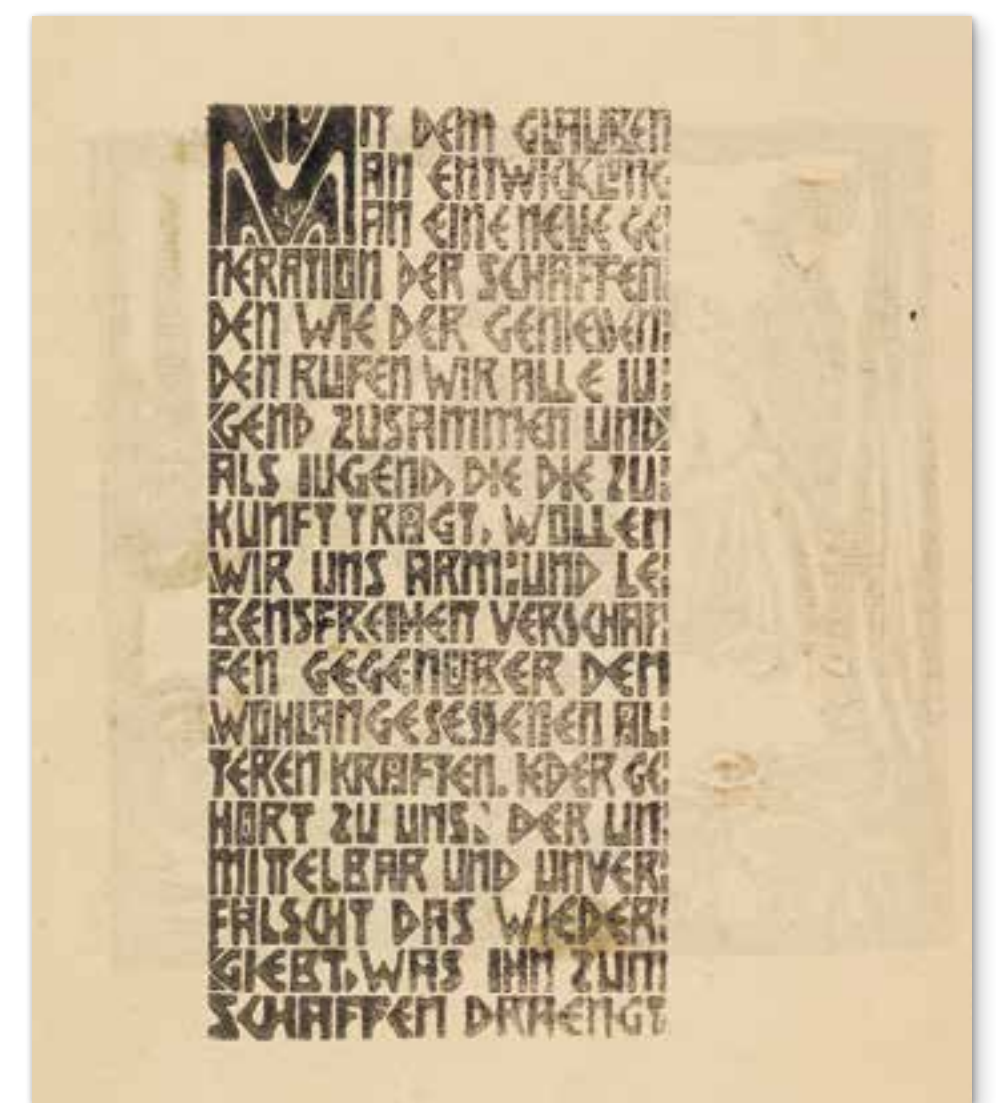 MIT DEM GLAUBEN
AN ENTWICKLUNG
AN EINE NEUE GE:
NERATION DER SCHAFFEN:
DEN WIE DER GENIESSEN:
DEN RUFEN WIR ALLE IU:
GEND ZUSAMMEN UND
ALS IUGEND, DIE DIE ZU:
KUNFT TRÄGT, WOLLEN
WIR UNS ARM:UND LE:
BENSFREIHEIT VERSCHAF:
FEN GEGENÜBER DEN
WOHLANGESESSENEN ÄL:
TEREN KRÄFTEN. IEDER GE
HÖRT ZU UNS, DER UN:
MITTELBAR UND UNVER:
FÄLSCHT DAS WIEDER:
GIEBT, WAS IHN ZUM
SCHAFFEN DRAENGT